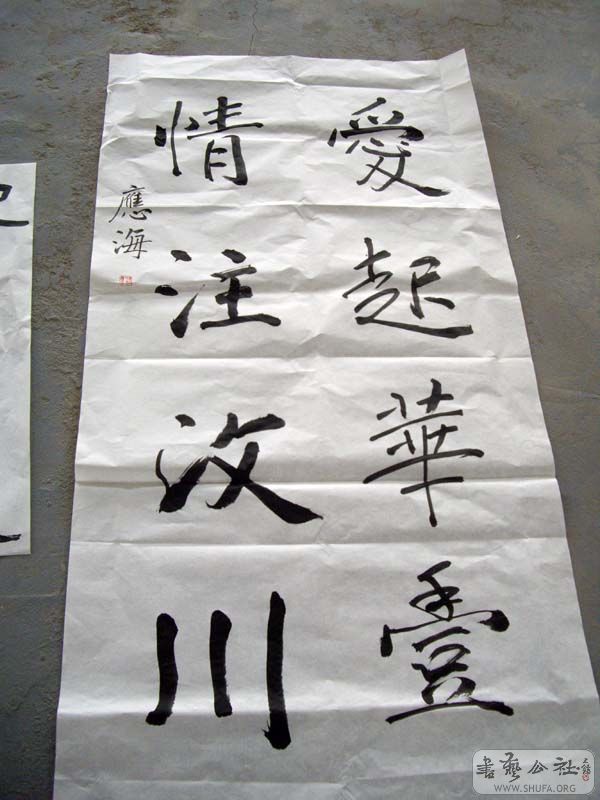 愛起華壹
情注汶川
應海
书艺公社
WWW.SHUFA.ORG